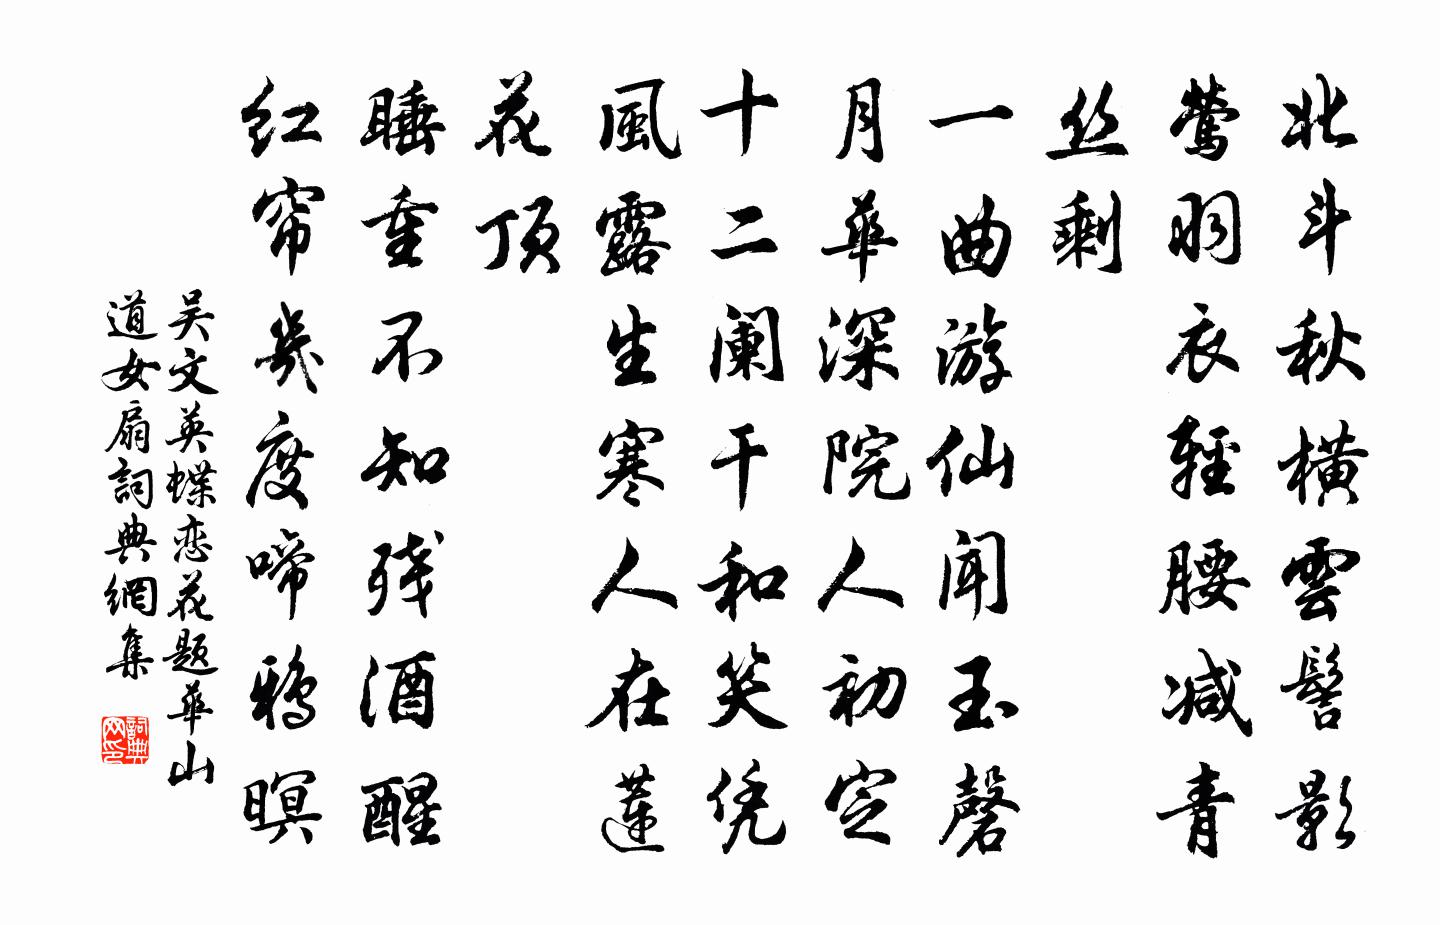 北斗秋横雲髻影
鶯羽衣輕腰减青
丝剩
一曲游仙闻玉磬
月華深院人初定
十二阑干和笑凭
風露生寒人在莲
花顶
睡重不知残酒醒
红帘幾度啼鸦暝
吴文英蝶恋花题華山
道女扇詞典網集
詞典网印